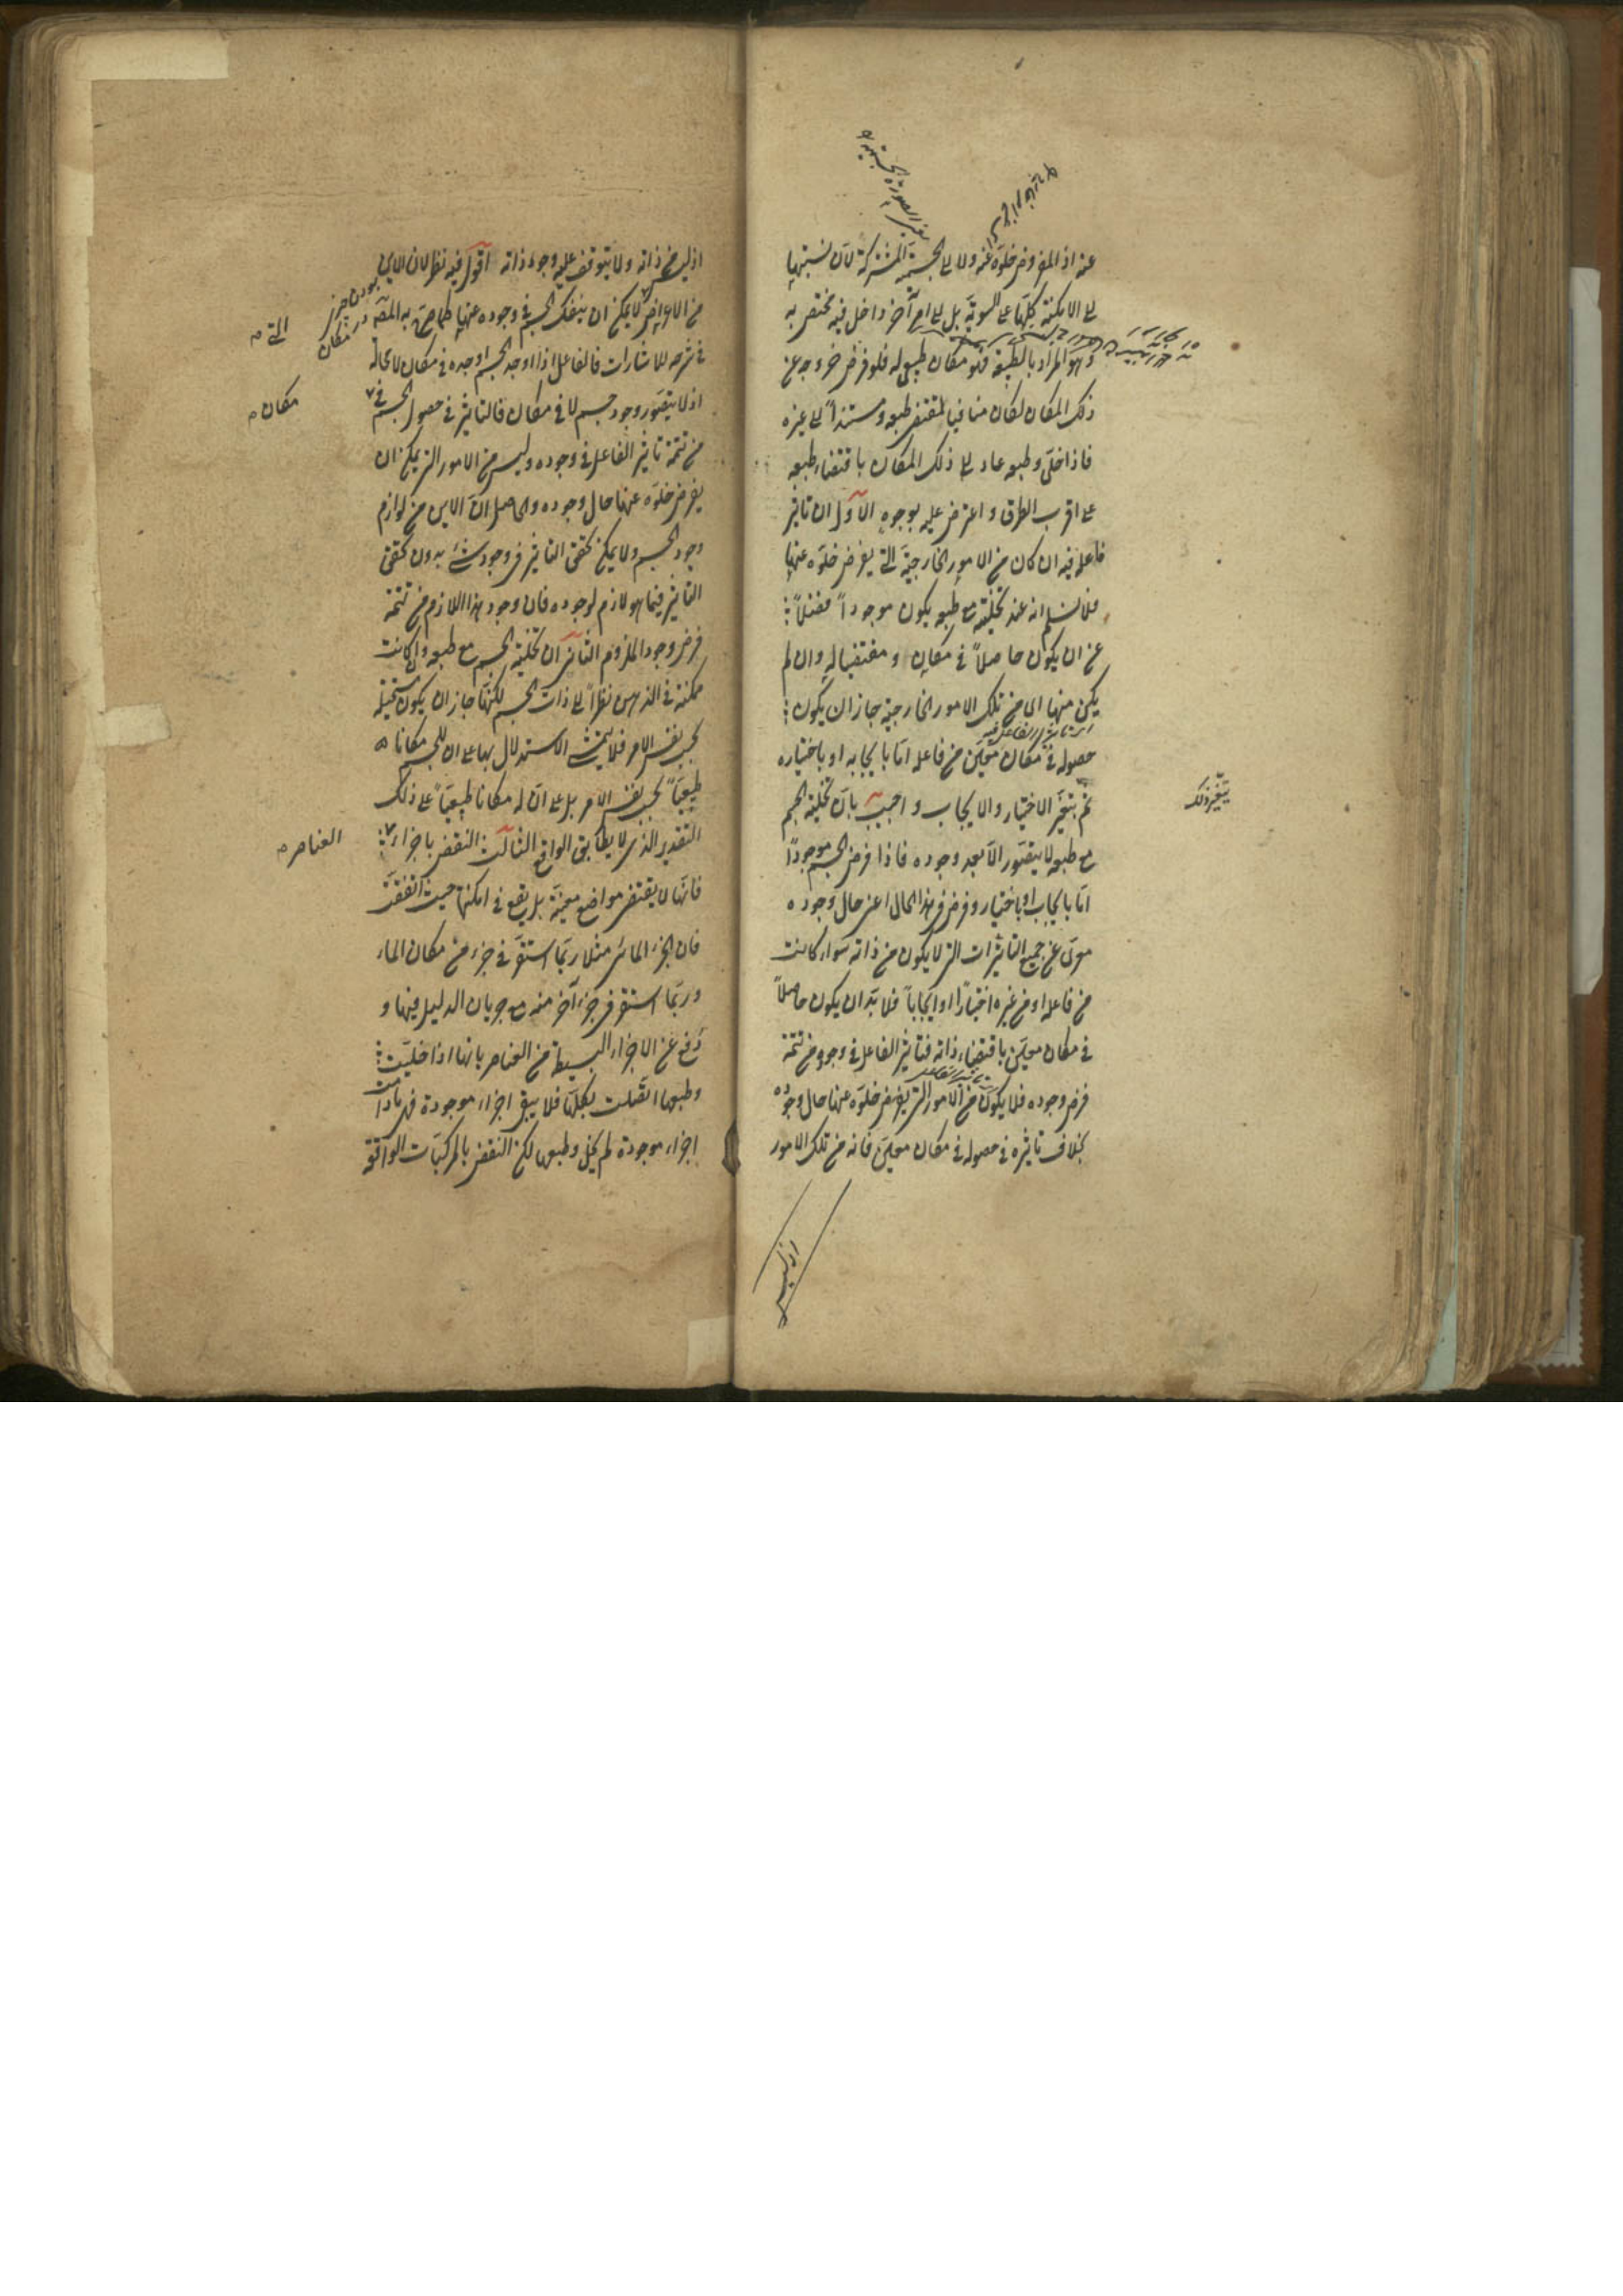 عنه اذ المفروض خلوّه عنه ولا الى الجسمية المشتركة لان نسبتها
الى الامكنة كلّها على السوية بل الى امر آخر داخل فيه مختص به
وهو المراد بالطبيعة فهو مكان طبيعى له فلو فرض خروجه عن
ذلك المكان لكان منافيا لمقتضى طبعه ومستنداً الى غيره
فاذا خلّى وطبعه عاد الى ذلك المكان باقتضاء طبعه
على اقرب الطرق واعترض عليه بوجوه الاوّل ان تاثير
فاعله فيه ان كان من الامور الخارجيّة التى يفرض خلوّه عنها
فلا نسلم انه عند تخليته مع طبعه يكون موجوداً فضلاً
عن ان يكون حاصلاً فى مكان ومقتضيا له وان لم
يكن منها اى من تلك الامور الخارجية جاز ان يكون
اى تاثير الفاعل فيه
حصوله فى مكان معيّن من فاعله امّا بايجابه او باختياره
يتغير ذلك
ثم بتغيّر الاختيار والايجاب واجيب بانّ تخلية الجسم
مع طبعه لا يتصوّر الا بعد وجوده فاذا فرض الجسم موجودًا
امّا بايجاب او باختيار وفرض فى هذا الحال اعنى حال وجوده
معرّى عن جميع التاثيرات التى لا يكون من ذاته سواء كانت
من فاعله او من غيره اختياراً او ايجاباً فلا بدّ ان يكون حاصلاً
فى مكان معيّن باقتضاء ذاته فتاثير الفاعل فى وجوده من تتمة
تاثير الفاعل
فرض وجوده فلا يكون من الامور التى يفرض خلوّه عنها حال وجوده
بخلاف تاثيره فى حصوله فى مكان معيّن فانه من تلك الامور
اذ ليس
اذ ليس من ذاته ولا يتوقف عليه وجود ذاته اقول فيه نظر لان الاين
من الاعراض لا يمكن ان ينفك الجسم فى وجوده عنها كما صرّح به المصّ
التى
فى شرحه للاشارات فالفاعل اذا اوجد الجسم اوجده فى مكان لا محالة
اذ لا يتصوّر وجود جسم لا فى مكان فالتاثير فى حصول الجسم فى
مكان
من تتمة تاثير الفاعل فى وجوده وليس من الامور التى يمكن ان
يفرض خلوّه عنها حال وجوده والحاصل انّ الاين من لوازم
وجود الجسم ولا يمكن تحقق التاثير فى وجود شئ بدون تحقق
التاثير فيما هو لازم لوجوده فان وجود هذا اللازم من تتمة
فرض وجود الملزوم الثانى ان تخلية الجسم مع طبعه وان كانت
ممكنة فى الذهن نظراً الى ذات الجسم لكنّها جاز ان يكون مستحيلة
بحسب نفس الامر فلا يتمشّى الاستدلال بها على ان للجسم مكانا
طبيعيّاً بحسب نفس الامر بل على انّ له مكانا طبيعيّاً على ذلك
التقدير الذى لا يطابق الواقع الثالث النقض باجزاء
العناصر
فانّها لا يقتضى مواضع معيّنة بل يقع فى امكنتها حيث اتفقت
فان الجزء المائى مثلا ربّما استقرّ فى جزء من مكان الماء
وربّما استقرّ فى جزء آخر منه مع جريان الدليل فيها و
دفع عن الاجزاء البسيطة من العناصر بانها اذا خلّيت
وطبعها اتّصلت بكلّها فلا يبقى اجزاء موجودة فما دامت
اجزاء موجودة لم يخل وطبعها لكن النقض بالمركبات الواقعة